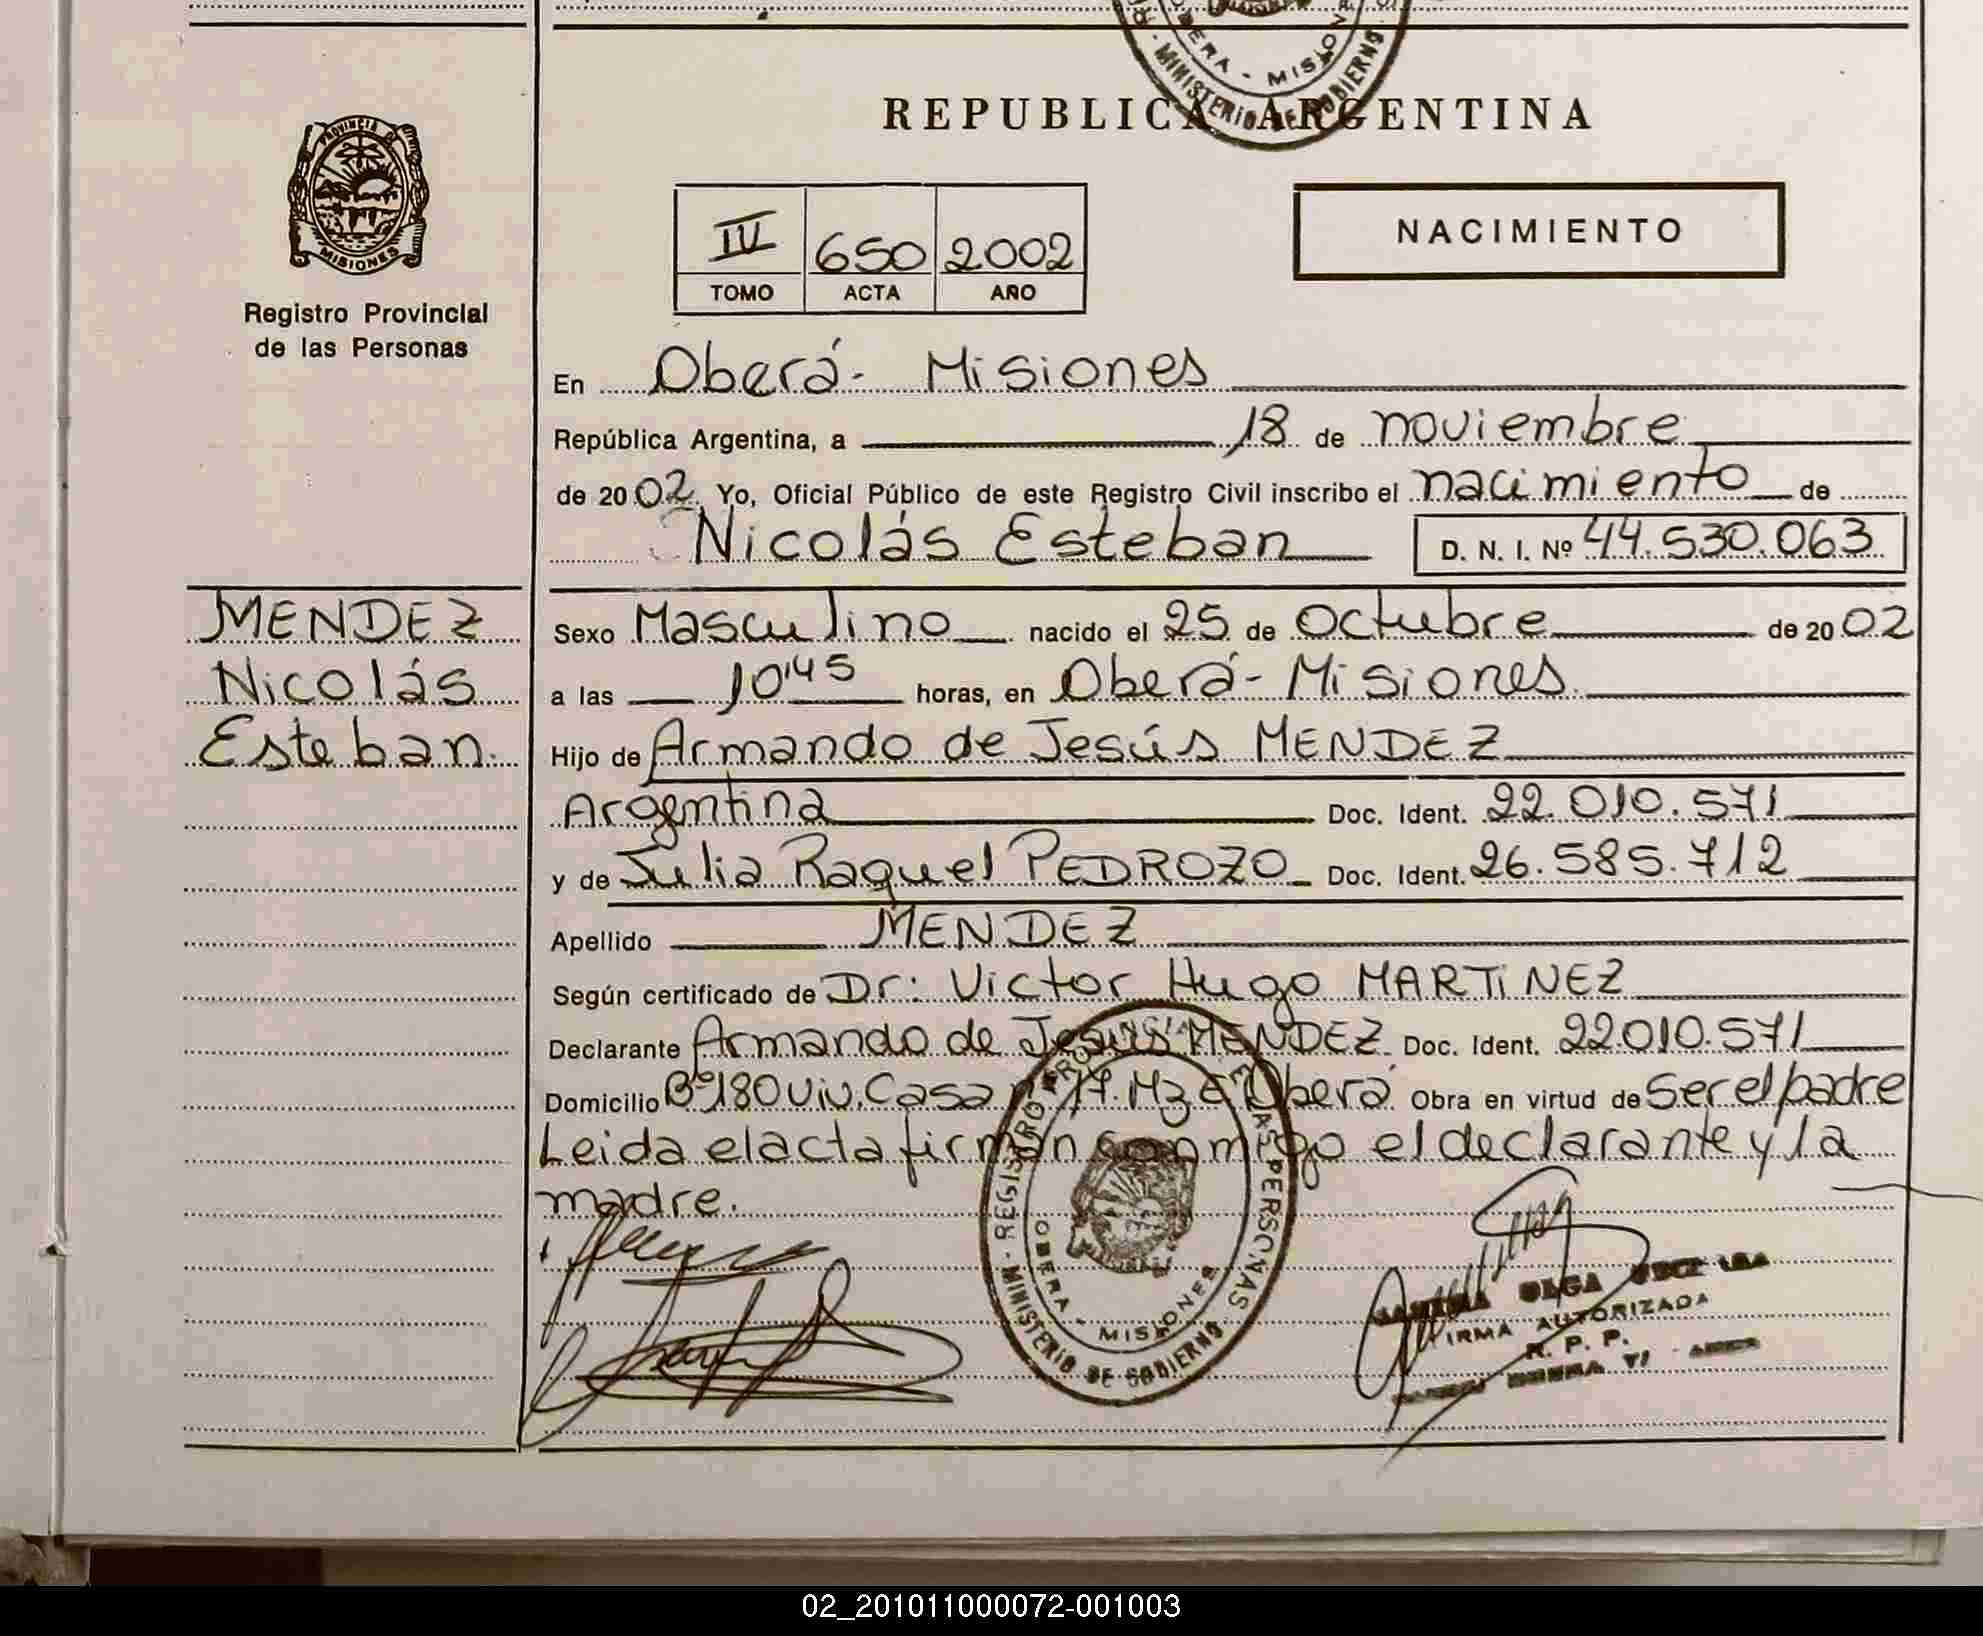 OBERA - MISION
R - MINISTERIO DE GOBIERNO
REPUBLICA ARGENTINA
PROVINCIA DE
MISIONES
Registro Provincial
de las Personas
IV 650 2002
TOMO ACTA AÑO
NACIMIENTO
En Oberá- Misiones
República Argentina, a 18 de noviembre
de 2002 Yo, Oficial Público de este Registro Civil inscribo el nacimiento de
Nicolás Esteban D. N. I. Nº 44.530.063
MENDEZ
Nicolás
Esteban.
Sexo Masculino nacido el 25 de Octubre de 2002
a las 10'45 horas, en Oberá- Misiones.
Hijo de Armando de Jesús MENDEZ
Argentina Doc. Ident. 22.010.571
y de Julia Raquel PEDROZO Doc. Ident. 26.585.712
Apellido MENDEZ
Según certificado de Dr: Victor Hugo MARTINEZ
Declarante Armando de Jesús MENDEZ Doc. Ident. 22.010.571
Domicilio Bº180 Viv. Casa 17. Mz Oberá Obra en virtud de ser el padre
Leida el acta firman conmigo el declarante y la
madre.
REGISTRO PROVINCIAL DE LAS PERSONAS
OBERA - MISIONES
- MINISTERIO DE GOBIERNO
OLGA
FIRMA AUTORIZADA
R. P. P.
02_201011000072-001003